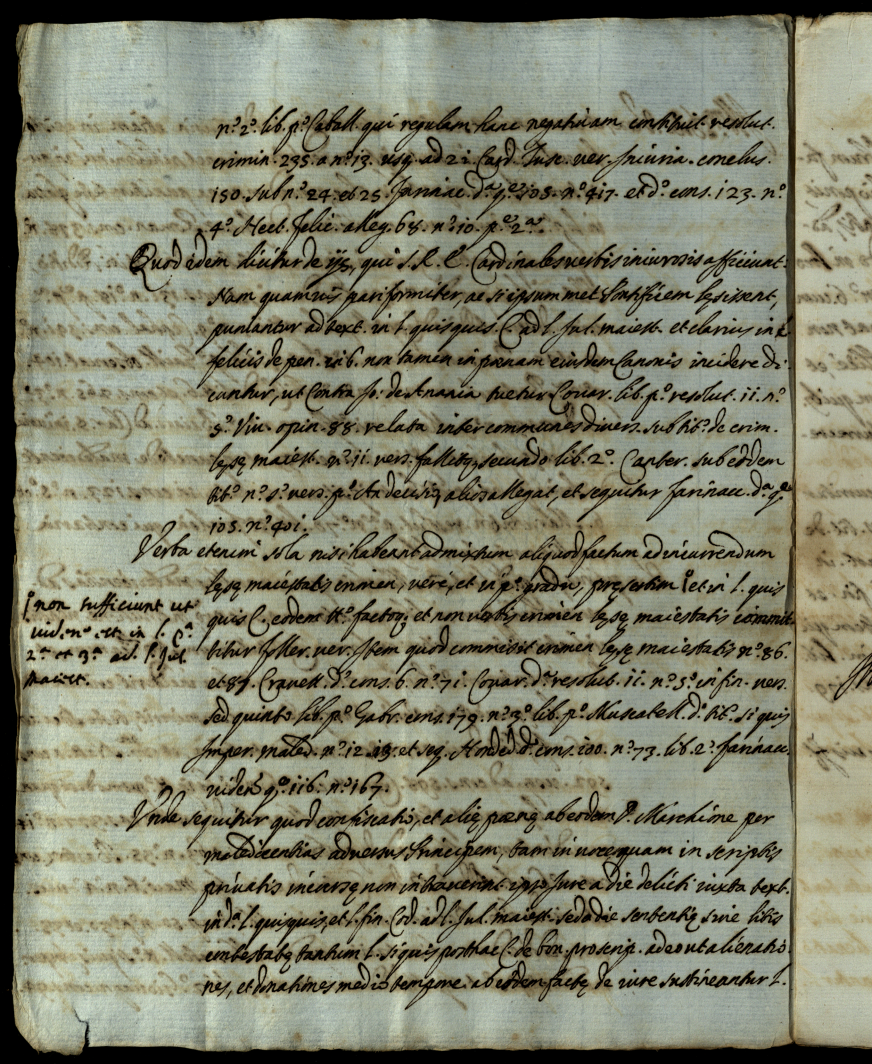 n.º 2.º lib. p.º Caball. qui regulam hanc negatiuam constituit resolut.
crimin. 235. a n.º 13. usq. ad 21. Card. Tusc. ver. Iniuria. conclus.
150. sub n.º 24. et 25. Farinac. d.ª q.e 105. n.º 417. et d.º cons. 123. n.º
4.º Nect. felic. alleg. 68. n.º 10. p.e 2.ª
Quod idem dicitur de ijs, qui S. R. E. Cardinales verbis iniuriosis afficiunt:
Nam quamuis pariformiter, ac si ipsum met Pontificem lęsissent,
puniantur ad text. in l. quisquis. C. ad l. Jul. maiest. et clarius in c.
felicis de pen. in 6. non tamen in pœnam eiusdem Canonis incidere di-
cuntur, ut Contra Jo: de Anania tuetur Couar. lib. p.º resolut. 11. n.º
5.º Viu. opin. 88. relata inter communes divers. sub tit.º de crim.
lęsę maiest. n.º 11. vers. fallit secundo lib. 2.º Canter. sub eodem
tit.º n.º 5.º vers. p.º alios allegat, et sequitur Farinac. d.ª q.e
105. n.º 401.
Verba etenim sola nisi habeant admixtum aliquod factum ad incurrendum
lęsę maiestatis crimen, verè, et in p.º gradu, pręsertim et in l. quis
quis C. eodem tt.º factoq; et non verbis crimen lęsę maiestatis committ
titur foller. ver. Item quod commisit crimen lęsę maiestatis n.º 86.
et 87. Crauett. d.º cons. 6. n.º 71. Couar. d.º resolut. 11. n.º 5.º in fin. vers.
sed quinto lib. p.º Gabr. cons. 179. n.º 3.º lib. p.º Muscatell. d.º tit. si quis
Imper. maled. n.º 12. 13. et seq. Honded. d.º cons. 100. n.º 73. lib. 2.º Farinac.
viden. q.e 116. n.º 167.
non sufficiunt ut
uid. n.º et in l. p.ª
2.ª et 3.ª ad l. Jul.
maiest.
Unde sequitur quod confiscatio, et alię pœnę ab eodem D. Marchione per
maledicentias adversus Principem, tam in voce quam in scriptis
priuatis incursę non intrauerint ipso Jure a die delicti iuxta text.
in d.ª l. quisquis, et l. fin. Cod. ad l. Jul. maiest. sed a die sententię sive litis
contestatę tantum l. si quis posthac C. de bon. proscrip. adeo ut alienatio-
nes, et donationes medio tempore ab eodem factę de iure sustineantur l.